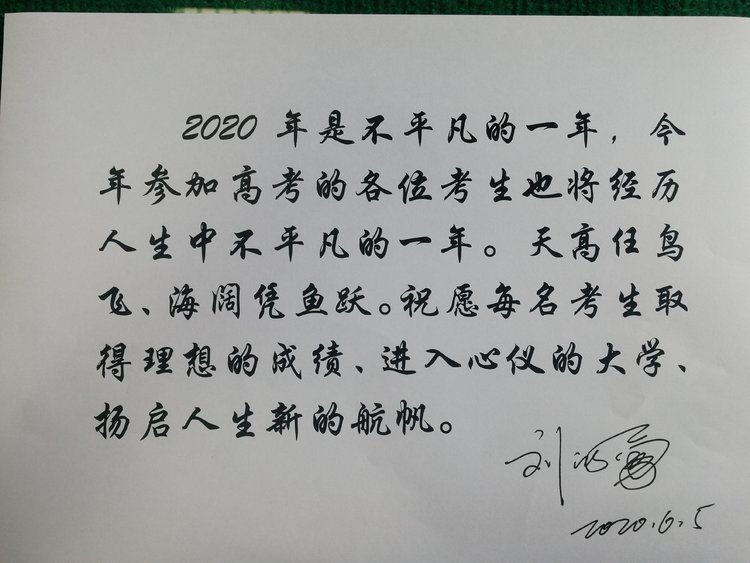 2020 年是不平凡的一年，今
年参加高考的各位考生也将经历
人生中不平凡的一年。天高任鸟
飞、海阔凭鱼跃。祝愿每名考生取
得理想的成绩、进入心仪的大学、
扬启人生新的航帆。
刘
2020.6.5